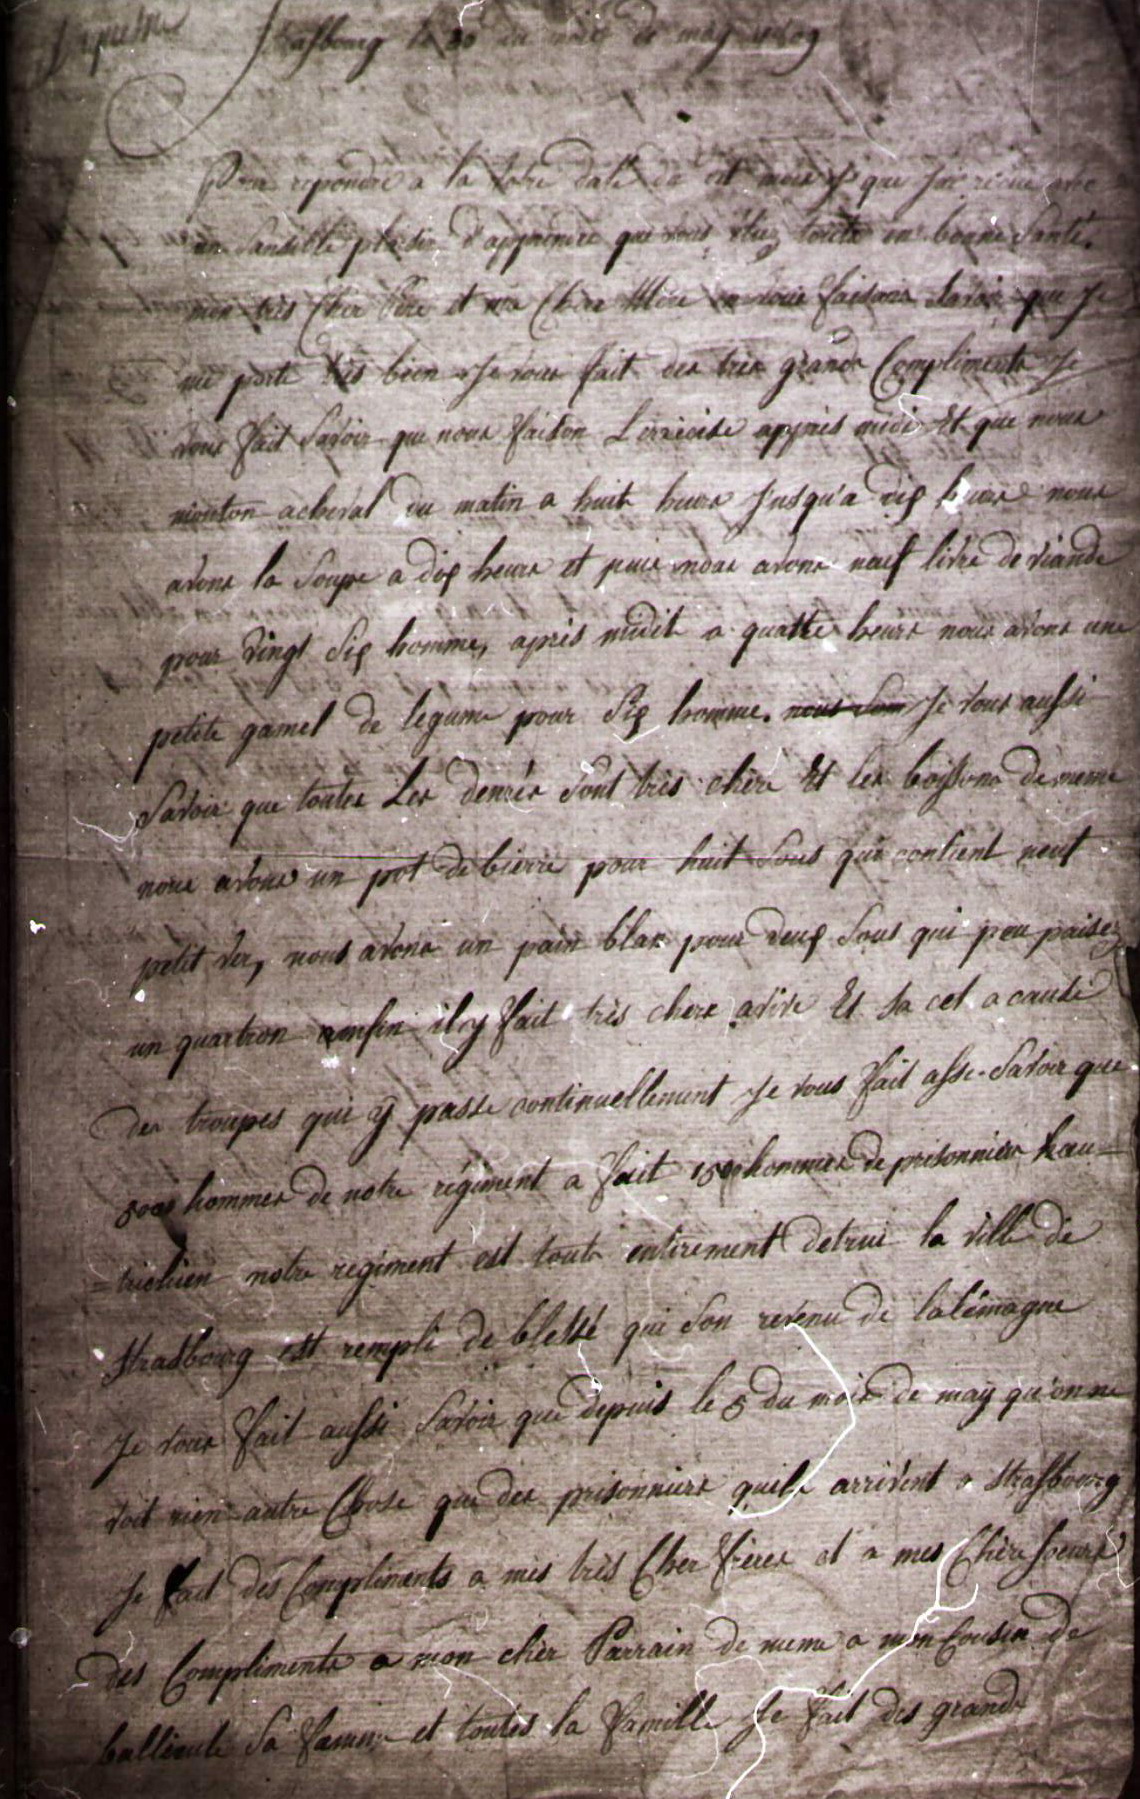 Strasbourg le 30 du mois de may 1809
Pour repondre a la votre daté du dit mois que Jai recue avec
un Sansible plaisir d'apprendre que vous étiez toute en bonne Santé.
mon très Cher Père et ma Chère Mère vous faisans Savoir que Je
me porte très bien Je vous fait des tres grands Compliments Je
vous fait Savoir que nous faison L'exzecise apprès midi Et que nous
monton acheval du matin a huit heurs Jusqu'a dix heurs nous
avons la Soupe a dix heurs et puis nous avons neuf livre de viande
pour vingt Six homme, après midit a quattre heurs nous avons une
petite gamel de legume pour Six homme. nous Som Je vous aussi
Savoir que toutes Les denrés Sont très chère Et les boissons de meme
nous avons un pot de bierre pour huit Sous qui contient neuf
petit ver, nous avons un pain blan pour deux Sous qui peu paisez
un quartron anfin il y fait très chere avivre Et Sa cet a cause
des troupes qui y passe continuellement Je vous fait asse Savoir que
500 hommes de notre régiment a fait 1500 hommes de prisonnier hau=
=trichien notre regiment est toute entirement detrui la ville de
Strasbourg est rempli de blessé qui Son revenu de lalémagne
Je vous fait aussi Savoir que depuis le 5 du mois de may qu'on ne
voit rien autre Chose que des prisonniers quils arrivent a Strasbourg
Je fait des Compliments a mes très Cher frères et a mes Chère Soeurs
des Compliments a mon cher Parrain de meme a mon Cousin de
Sa famme et toutes la famille Je fait des grands